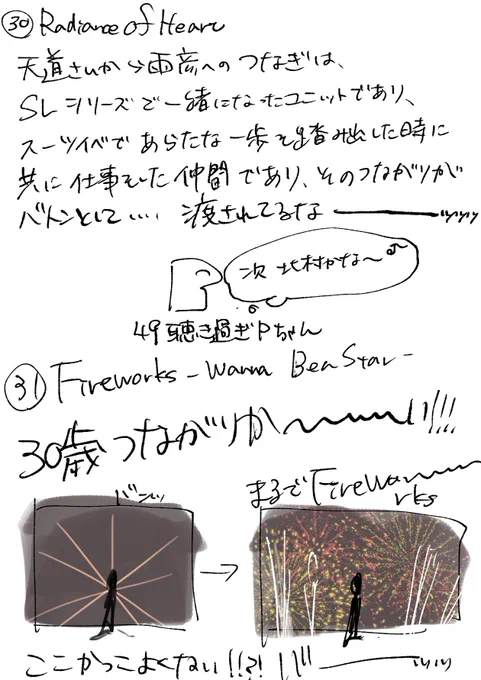 ㉚ Radiance of Heart
天道さんから雨彦へのつなぎは、
SLシリーズで一緒になったユニットであり、
スーツイベであらたな一歩を踏み出した時に
共に仕事をした仲間であり、そのつながりが
バトンとして…. 渡されてるな ――ッッッ
次 北村かな〜♪
49聴き過ぎPちゃん
㉛ Fireworks - Wanna Be a Star -
30歳つながりか〜〜〜い!!!
バンッ
まるでFireworks
ここかっこよくない!!?!